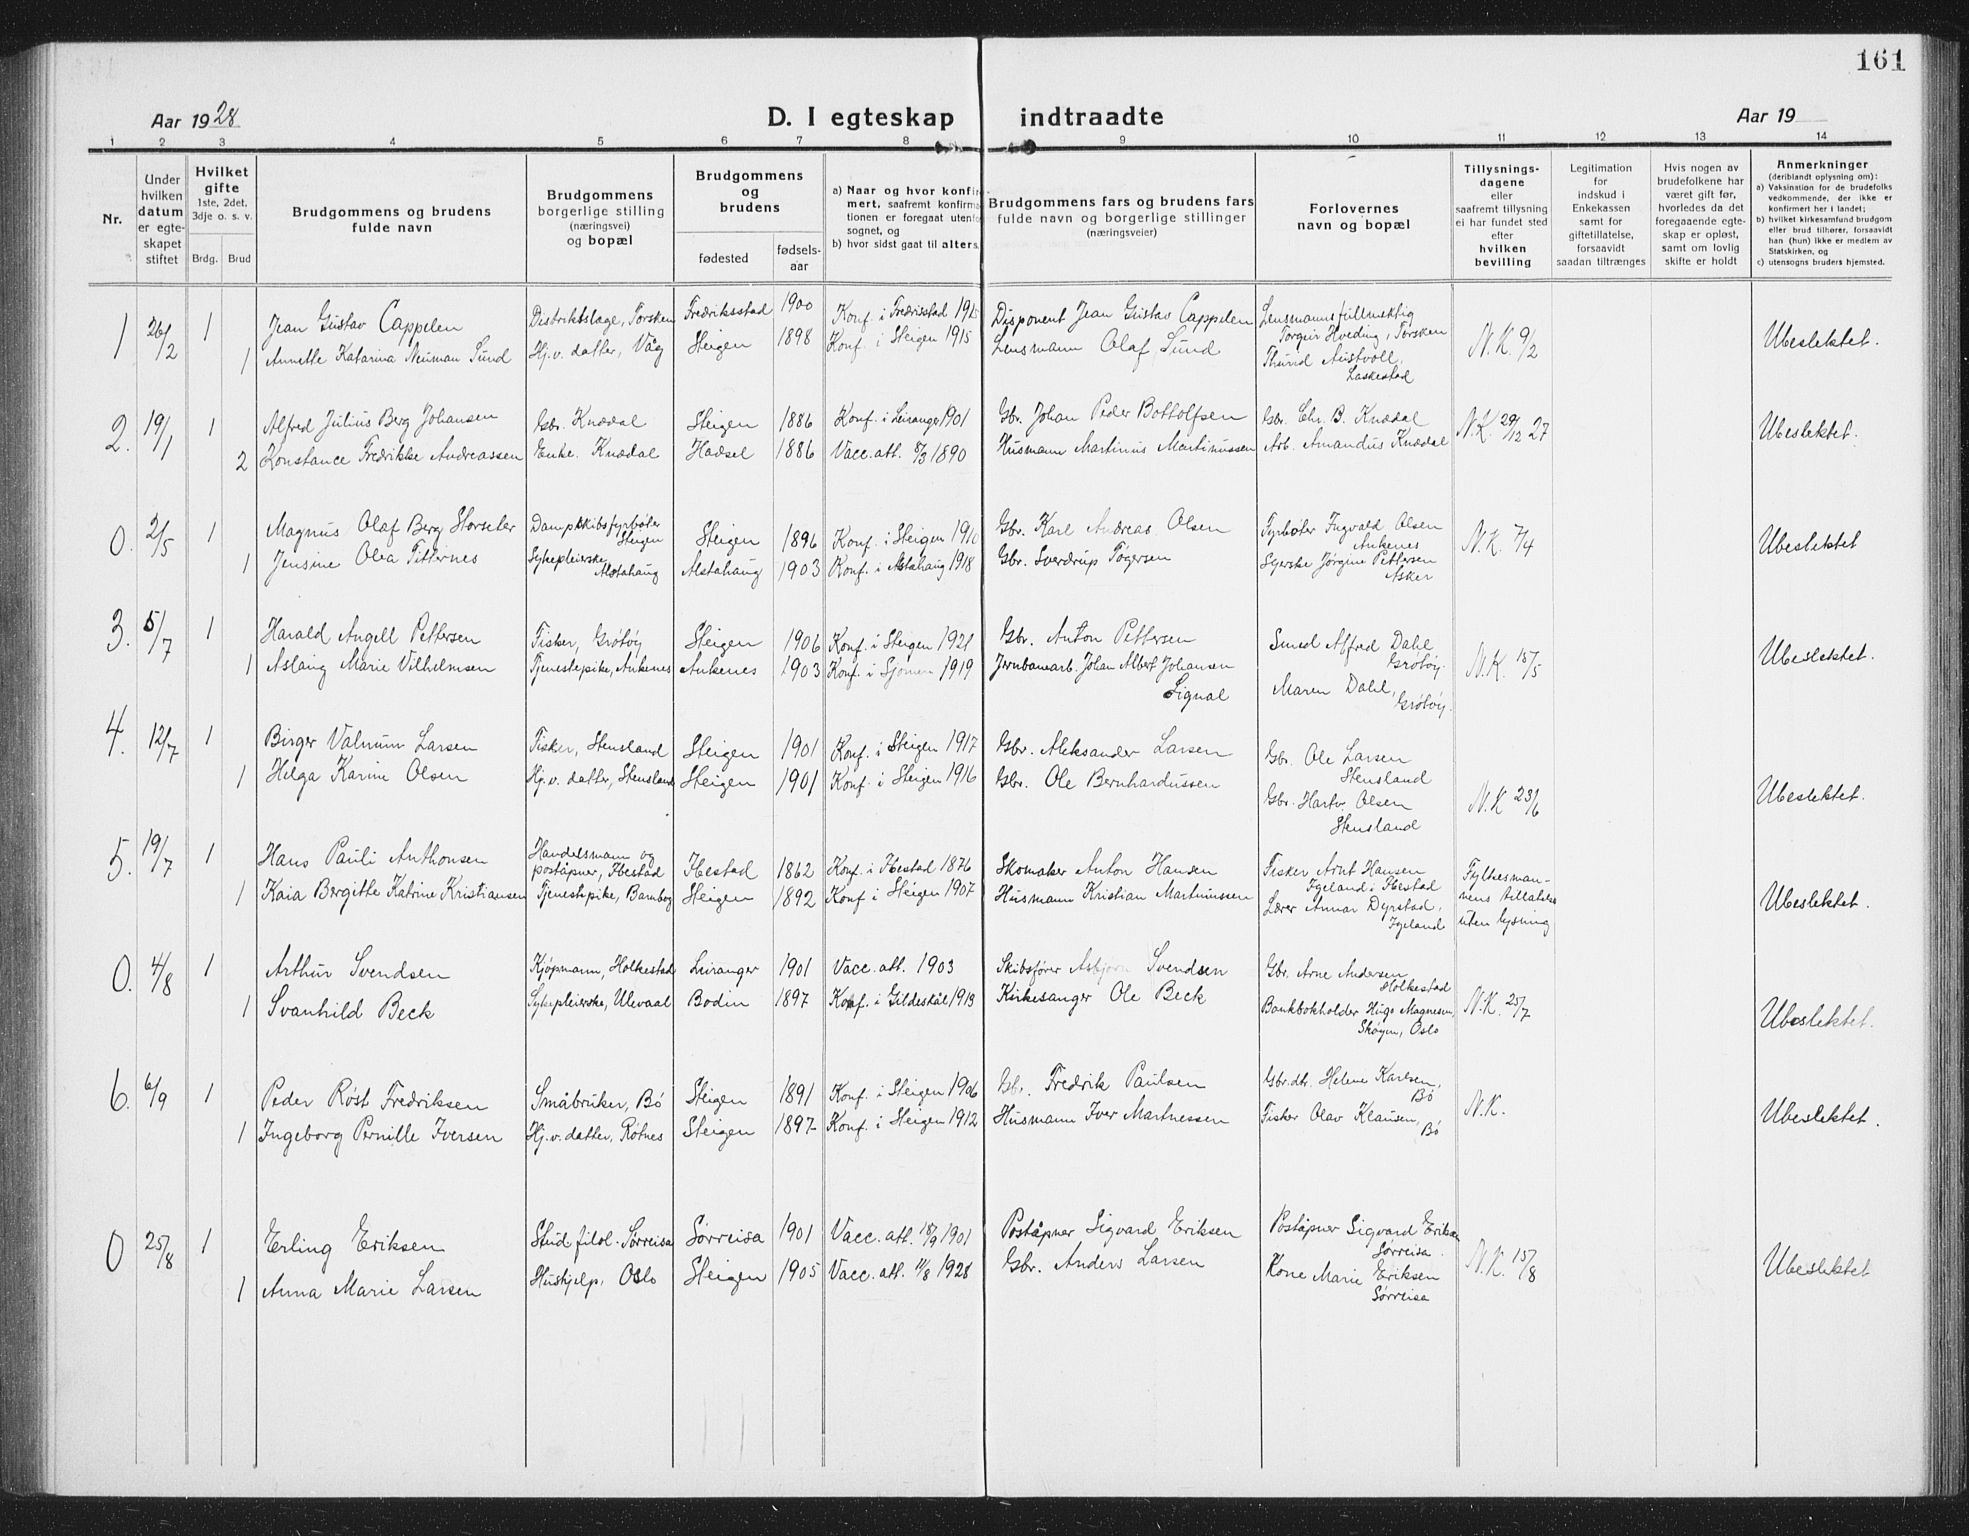 161
Aar 1928
D. I egteskap indtraadte
Aar 19
1 2 3 4 5 6 7 8 9 10 11 12 13 14
Nr.
Under hvilken datum er egteskapet stiftet
Hvilket gifte 1ste, 2det, 3dje o. s. v.
Brdg. Brud
Brudgommens og brudens fulde navn
Brudgommens borgerlige stilling (næringsvei) og bopæl
Brudgommens og brudens
fødested
fødsels-aar
a) Naar og hvor konfirmert, saafremt konfirmationen er foregaat utenfor sognet, og
b) hvor sidst gaat til alters.
Brudgommens fars og brudens fars fulde navn og borgerlige stillinger (næringsveier)
Forlovernes navn og bopæl
Tillysningsdagene eller saafremt tillysning ei har fundet sted efter hvilken bevilling
Legitimation for indskud i Enkekassen samt for giftetillatelse, forsaavidt saadan tiltrænges
Hvis nogen av brudefolkene har været gift før, hvorledes da det foregaaende egteskap er opløst, samt om lovlig skifte er holdt
Anmerkninger (deriblandt oplysning om):
a) Vaksination for de brudefolks vedkommende, der ikke er konfirmert her i landet;
b) hvilket kirkesamfund brudgom eller brud tilhører, forsaavidt han (hun) ikke er medlem av Statskirken, og
c) utensogns bruders hjemsted.
1 26/2 1 Jean Gustav Cappelen Distriktslæge, Torsken Fredriksstad 1900 Konf. i Fredrisstad 1915 Disponent Jean Gustav Cappelen Lensmannsfullmektig Torgeir Hveding, Torsken N.K. 9/2 Ubeslektet.
1 Annette Katarina Neuman Sund Hj.v. datter, Våg Steigen 1898 Konf. i Steigen 1915 Lensmann Olaf Sund Thurid Austvoll, Laskestad
2. 19/1 1 Alfred Julius Berg Johansen Gbr. Knædal Steigen 1886 Konf. i Leiranger 1901 Gbr. Johan Peder Bottolfsen Gbr. Chr. B. Knædal N.K. 29/12 27 Ubeslektet.
2 Konstance Fredrikke Andreassen Enke. Knædal Hadsel 1886 Vacc. att. 8/3 1890 Husmann Martinus Martinussen Arb. Amandus Knædal
0. 2/5 1 Magnus Olaf Berg Storseter Dampskibsfyrbøter Steigen Steigen 1896 Konf. i Steigen 1910 Gbr. Karl Andreas Olsen Fyrbøter Ingvald Olsen Ankenes N.K. 7/4 Ubeslektet
1 Jensine Olea Titternes Sykepleierske Alstahaug Alstahaug 1903 Konf. i Alstahaug 1918 Gbr. Sverdrup Tøgersen Syerske Jørgine Pettersen Asker
3. 5/7 1 Harald Angell Pettersen Fisker, Grøtøy Steigen 1906 Konf. i Steigen 1921 Gbr. Anton Pettersen Smed Alfred Dahl Grøtøy N.K. 15/5 Ubeslektet.
1 Aslaug Marie Vilhelmsen Tjenestepike, Ankenes Ankenes 1903 Konf. i 1919 Jernbanearb. Johan Albert Johansen Signal Maren Dahl, Grøtøy.
4. 12/7 1 Birger Valnum Larsen Fisker, Stensland Steigen 1901 Konf. i Steigen 1917 Gbr. Aleksander Larsen Gbr. Ole Larsen Stensland
1 Helga Karine Olsen Hj.v. datter, Stensland Steigen 1901 Konf. i Steigen 1916 Gbr. Ole Bernhardussen Gbr. Hartv. Olsen Stensland N.K 23/6 Ubeslektet.
5. 19/7 1 Hans Pauli Anthonsen Handelsmann og poståpner, Ibestad Ibestad 1862 Konf. i Ibestad 1876 Skomaker Anton Hansen Fisker Arnt Hansen Igeland i Ibestad Fylkesmannens tillatelse uten lysning Ubeslektet.
1 Kaia Bergitte Katrine Kristiansen Tjenestepike, Bamboq Steigen 1892 Konf. i Steigen 1907 Husmann Kristian Martinussen Lærer Annar Dyrstad, Igeland
0. 4/8 1 Arthur Svendsen Kjøpmann, Holkestad Leiranger 1901 Vacc. att. 1903 Skibsfører Asbjørn Svendsen Gbr. Arne Andersen Holkestad N.K. 25/7 Ubeslektet.
1 Svanhild Beck Sykepleierske, Ulevaal Bodin 1897 Konf. i Gildeskål 1913 Kirkesanger Ole Beck Bankbokholder Hugo Magnesen, Skøyen, Oslo
6. 6/9 1 Peder Røst Fredriksen Småbruker, Bø Steigen 1891 Konf. i Steigen 1906 Gbr. Fredrik Paulsen Gbr.dtr. Helene Karlsen, Bø N.K. Ubeslektet.
1 Ingeborg Pernille Iversen Hj.v. datter, Røtnes Steigen 1897 Konf. i Steigen 1912 Husmann Iver Martnessen Fisker Olav Klausen, Bø
0 25/8 1 Erling Eriksen Stud filol. Sørreisa Sørreisa 1901 Vacc. att. 18/9 1901 Poståpner Sigvard Eriksen Poståpner Sigvard Eriksen Sørreisa. N.K. 15/8 Ubeslektet
1 Anna Marie Larsen Hushjelp, Oslo Steigen 1905 Vacc. att. 11/8 1928 Gbr. Anders Larsen Kone Marie Eriksen Sørreisa